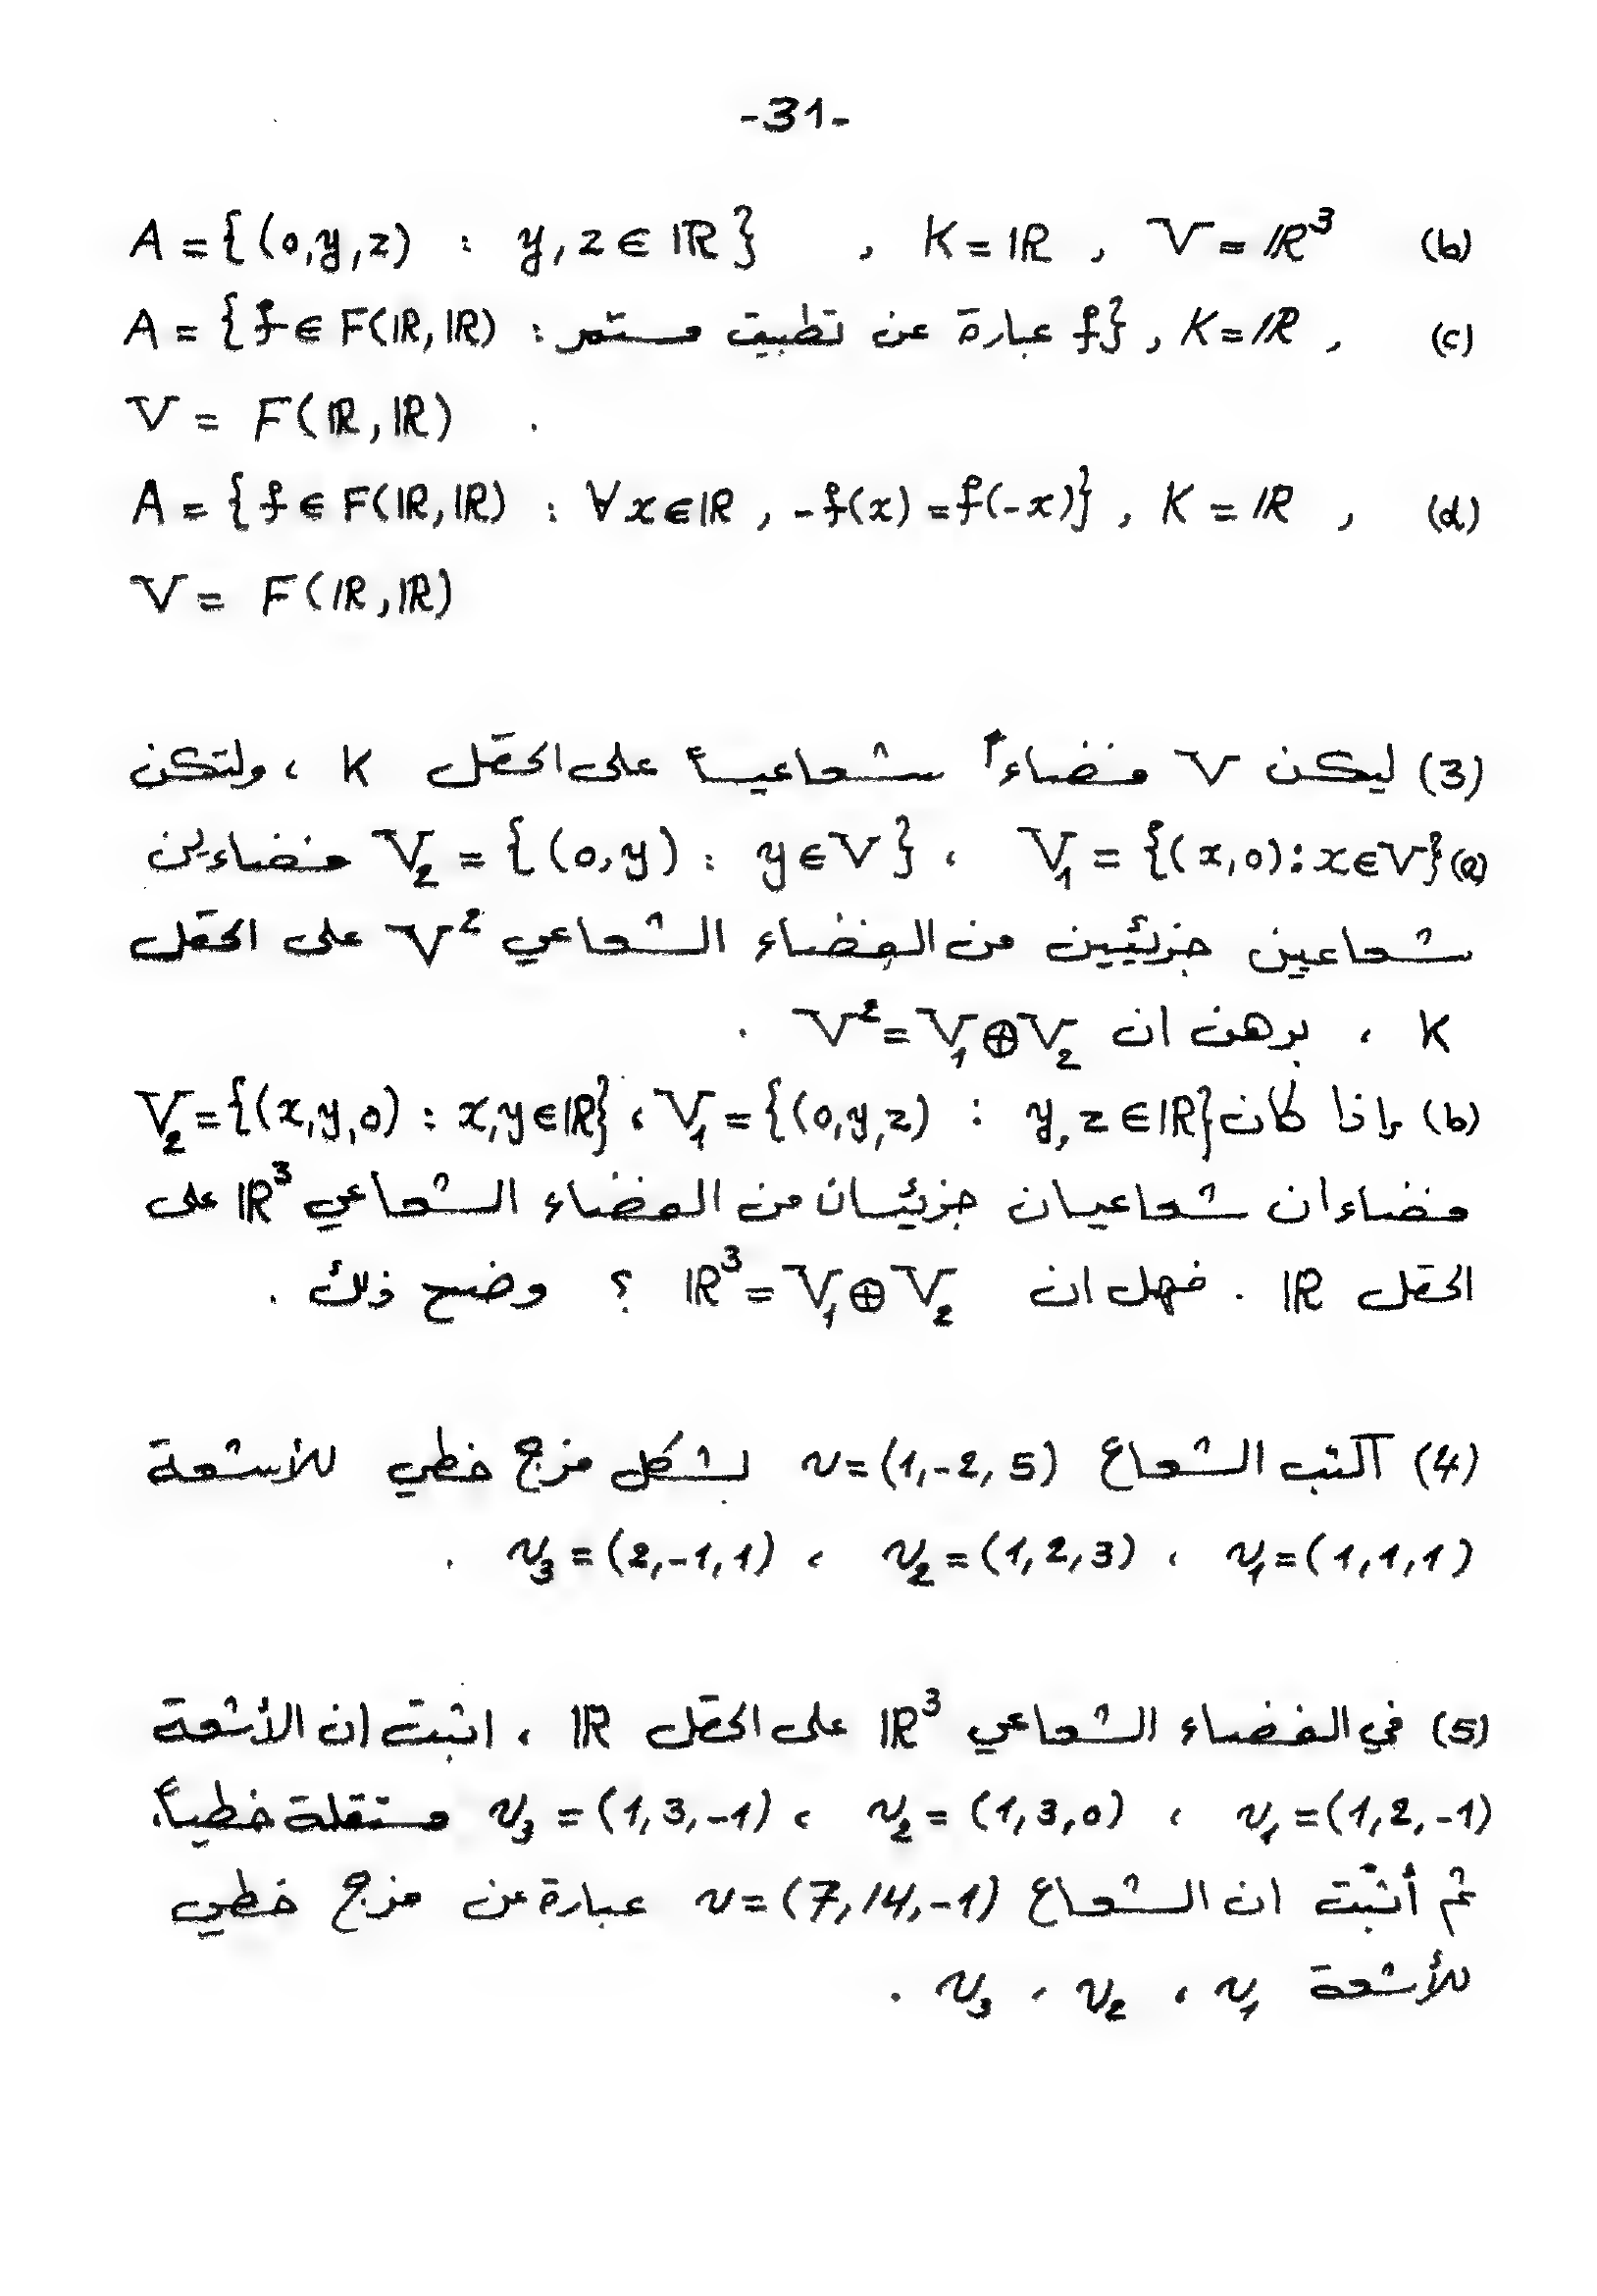 -31-
(b) V = ℝ³ , K = ℝ , A = {(0,y,z) : y,z ∈ ℝ}
(c) A = {f ∈ F(ℝ,ℝ) : عبارة عن تطبيق مستمر f} , K = ℝ ,
V = F(ℝ,ℝ) .
(d) A = {f ∈ F(ℝ,ℝ) : ∀x ∈ ℝ , -f(x) = f(-x)} , K = ℝ ,
V = F(ℝ,ℝ)
(3) ليكن V فضاءاً شعاعياً على الحقل K ، ولتكن
(a) V₁ = {(x,0) : x ∈ V} ، V₂ = {(0,y) : y ∈ V} فضاءين
شعاعين جزئيين من الفضاء الشعاعي V² على الحقل
K ، برهن ان V² = V₁ ⊕ V₂ .
(b) إذا كان V₁ = {(0,y,z) : y,z ∈ ℝ} ، V₂ = {(x,y,0) : x,y ∈ ℝ}
فضاءان شعاعيان جزئيان من الفضاء الشعاعي ℝ³ على
الحقل ℝ . فهل ان ℝ³ = V₁ ⊕ V₂ ؟ وضح ذلك .
(4) اكتب الشعاع v = (1,-2,5) بشكل مزج خطي للأشعة
v₁ = (1,1,1) ، v₂ = (1,2,3) ، v₃ = (2,-1,1) .
(5) في الفضاء الشعاعي ℝ³ على الحقل ℝ ، اثبت ان الأشعة
v₁ = (1,2,-1) ، v₂ = (1,3,0) ، v₃ = (1,3,-1) مستقلة خطياً،
ثم أثبت ان الشعاع v = (7,14,-1) عبارة عن مزج خطي
للأشعة v₁ ، v₂ ، v₃ .